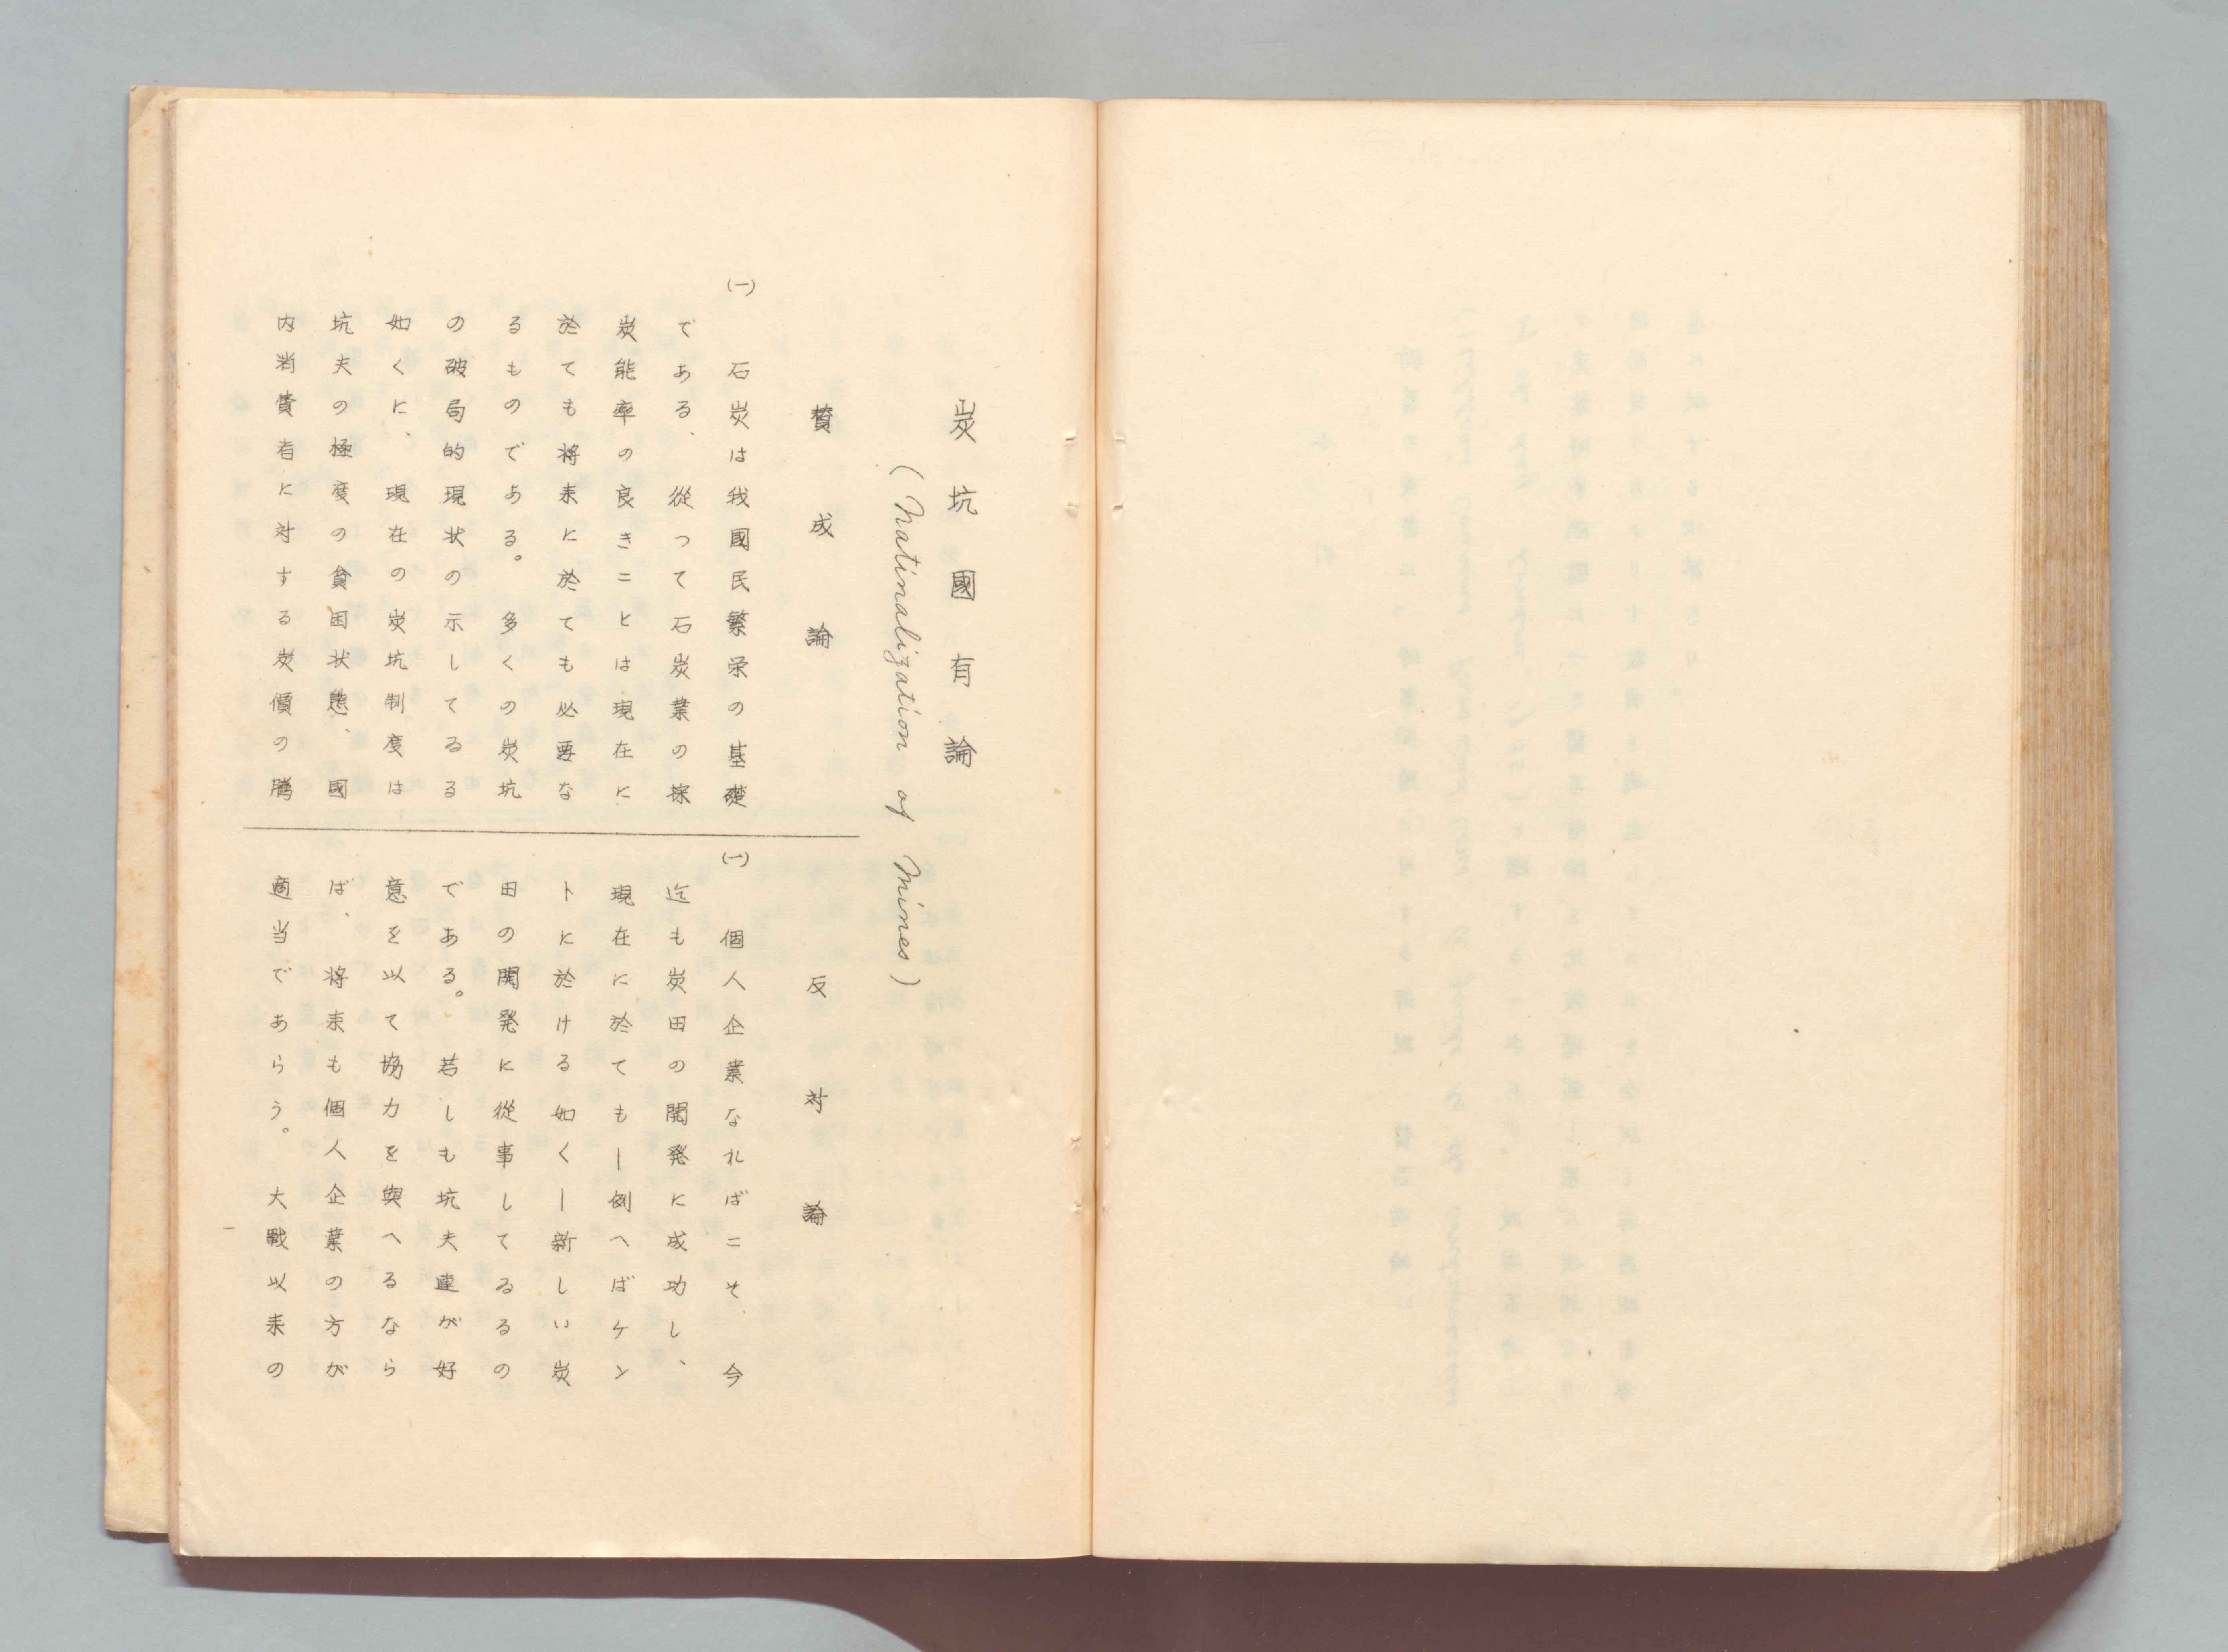 炭坑國有論
(Natinalization of Mines)
賛成論
(一)
石炭は我國民繁栄の基礎
である、從つて石炭業の採
炭能率の良きことは現在に
於ても将来に於ても必要な
るものである。多くの炭坑
の破局的現状の示してゐる
如くに、現在の炭坑制度は
坑夫の極度の貧困状態、國
内消費者に対する炭價の騰
反対論
(一)
個人企業なればこそ、今
迄も炭田の開発に成功し、
現在に於ても―例へばケン
トに於ける如く―新しい炭
田の開発に從事してゐるの
である。若しも坑夫連が好
意を以て協力を與へるなら
ば、将来も個人企業の方が
適当であらう。大戰以来の